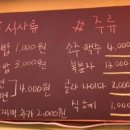 식사류
밥 1.000원
밥 3.000원
면 4.000원
추가 2.000원
# 주류
소주 맥주 4.000
복분자 13.000
콜라 사이다 2.000
식혜 1.000